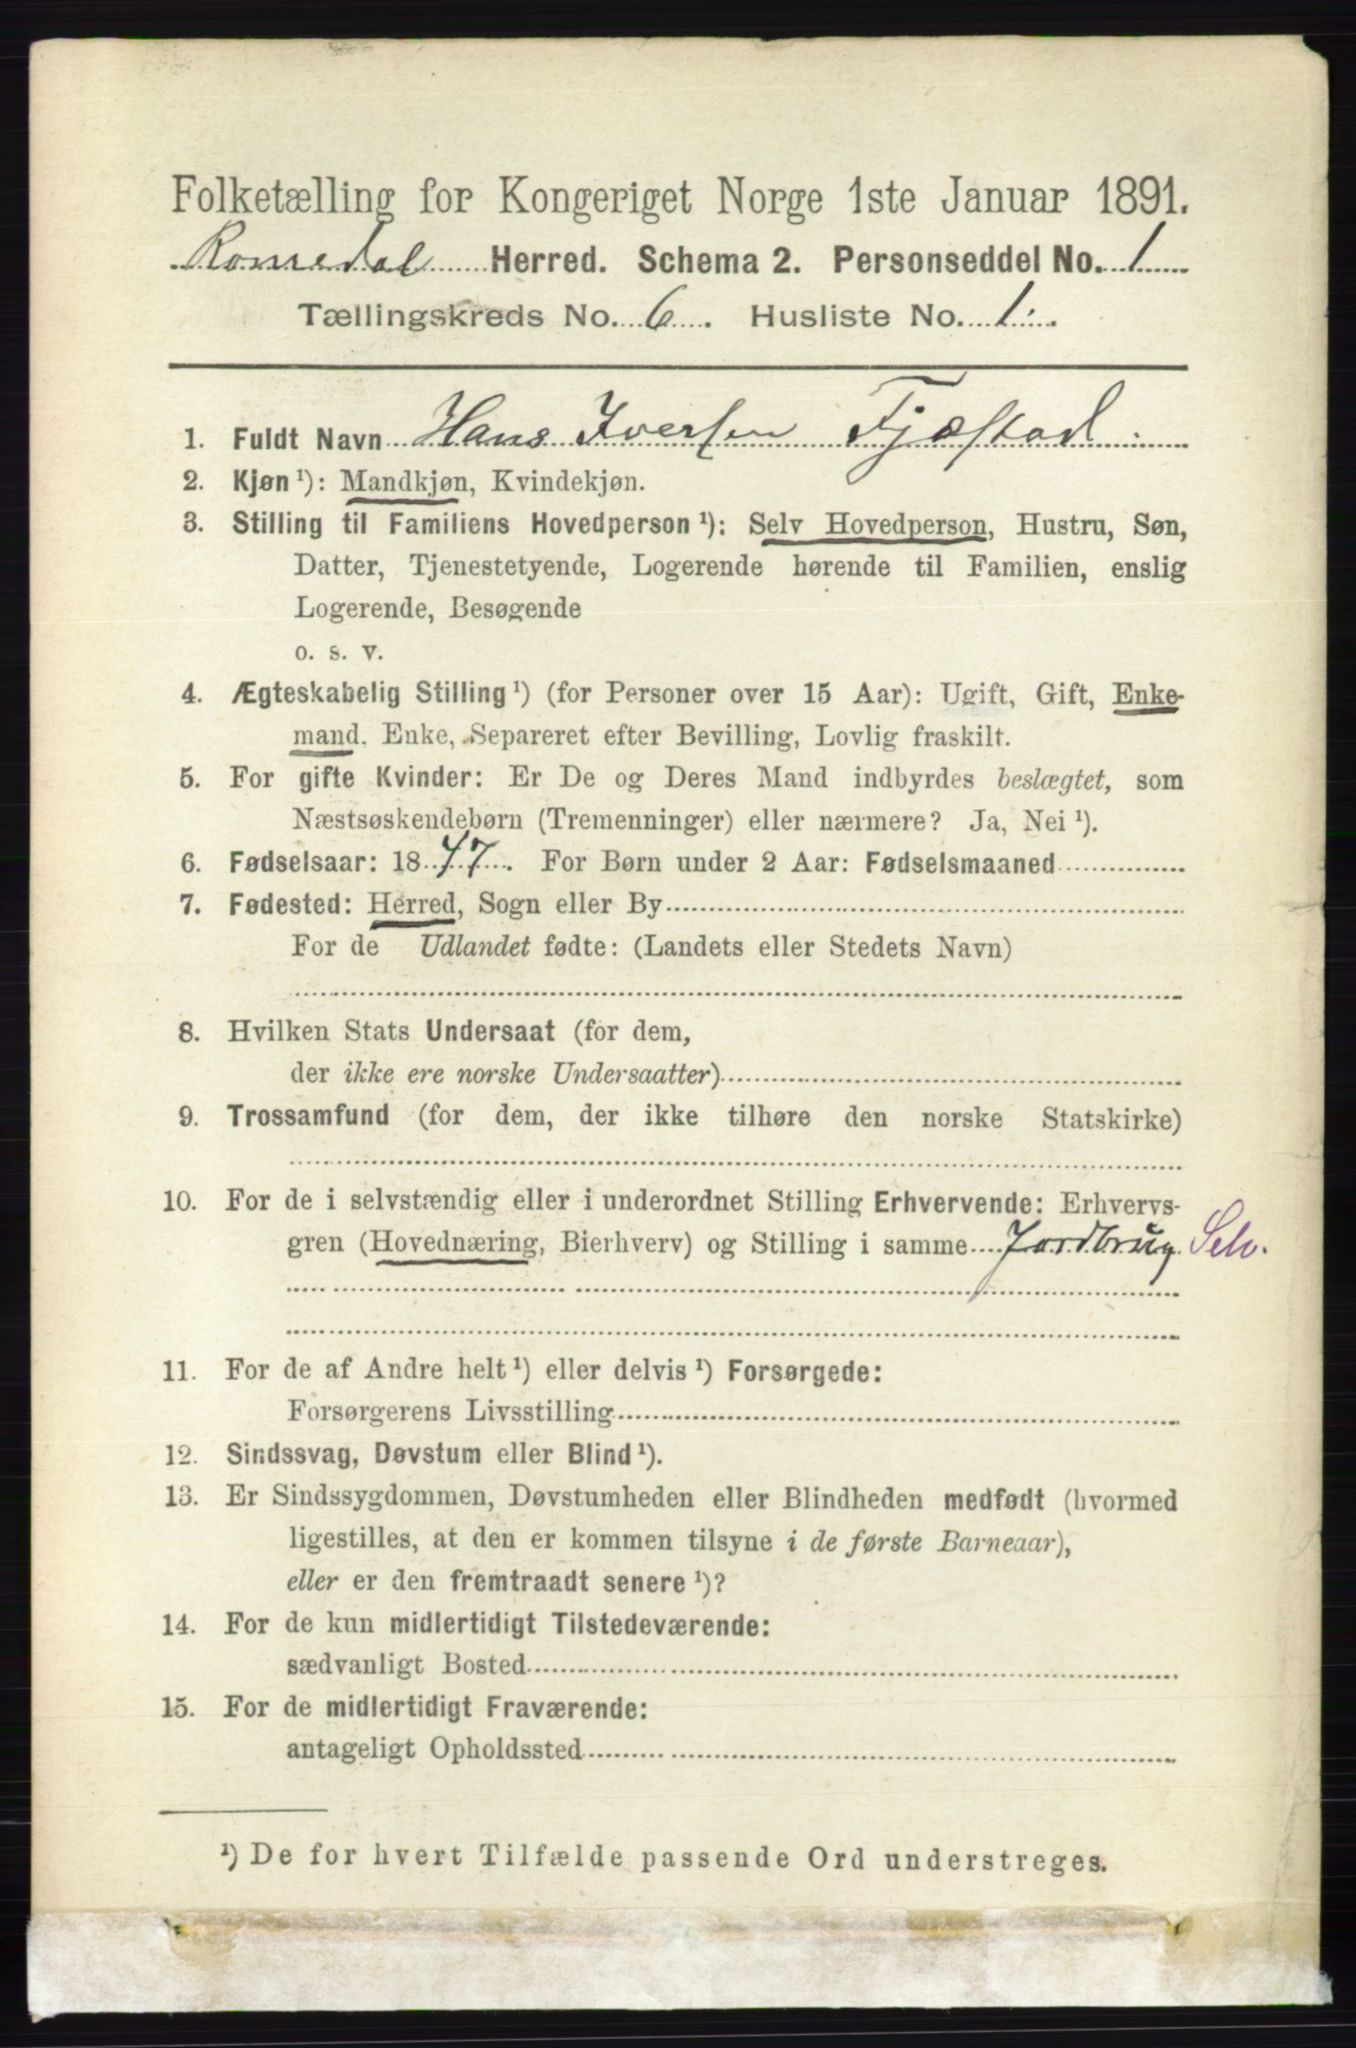 Folketælling for Kongeriget Norge 1ste Januar 1891.
Romedal Herred. Schema 2. Personseddel No. 1
Tællingskreds No. 6. Husliste No. 1.
1. Fuldt Navn Hans Iversen Fjæstad.
2. Kjøn ¹): Mandkjøn, Kvindekjøn.
3. Stilling til Familiens Hovedperson ¹): Selv Hovedperson, Hustru, Søn,
Datter, Tjenestetyende, Logerende hørende til Familien, enslig
Logerende, Besøgende
o. s. v.
4. Ægteskabelig Stilling ¹) (for Personer over 15 Aar): Ugift, Gift, Enke-
mand, Enke, Separeret efter Bevilling, Lovlig fraskilt.
5. For gifte Kvinder: Er De og Deres Mand indbyrdes beslægtet, som
Næstsøskendebørn (Tremenninger) eller nærmere? Ja, Nei ¹).
6. Fødselsaar: 1847. For Børn under 2 Aar: Fødselsmaaned
7. Fødested: Herred, Sogn eller By
For de Udlandet fødte: (Landets eller Stedets Navn)
8. Hvilken Stats Undersaat (for dem,
der ikke ere norske Undersaatter)
9. Trossamfund (for dem, der ikke tilhøre den norske Statskirke)
10. For de i selvstændig eller i underordnet Stilling Erhvervende: Erhvervs-
gren (Hovednæring, Bierhverv) og Stilling i samme Jordbrug Selv.
11. For de af Andre helt ¹) eller delvis ¹) Forsørgede:
Forsørgerens Livsstilling
12. Sindssvag, Døvstum eller Blind ¹).
13. Er Sindssygdommen, Døvstumheden eller Blindheden medfødt (hvormed
ligestilles, at den er kommen tilsyne i de første Barneaar),
eller er den fremtraadt senere ¹)?
14. For de kun midlertidigt Tilstedeværende:
sædvanligt Bosted
15. For de midlertidigt Fraværende:
antageligt Opholdssted
¹) De for hvert Tilfælde passende Ord understreges.